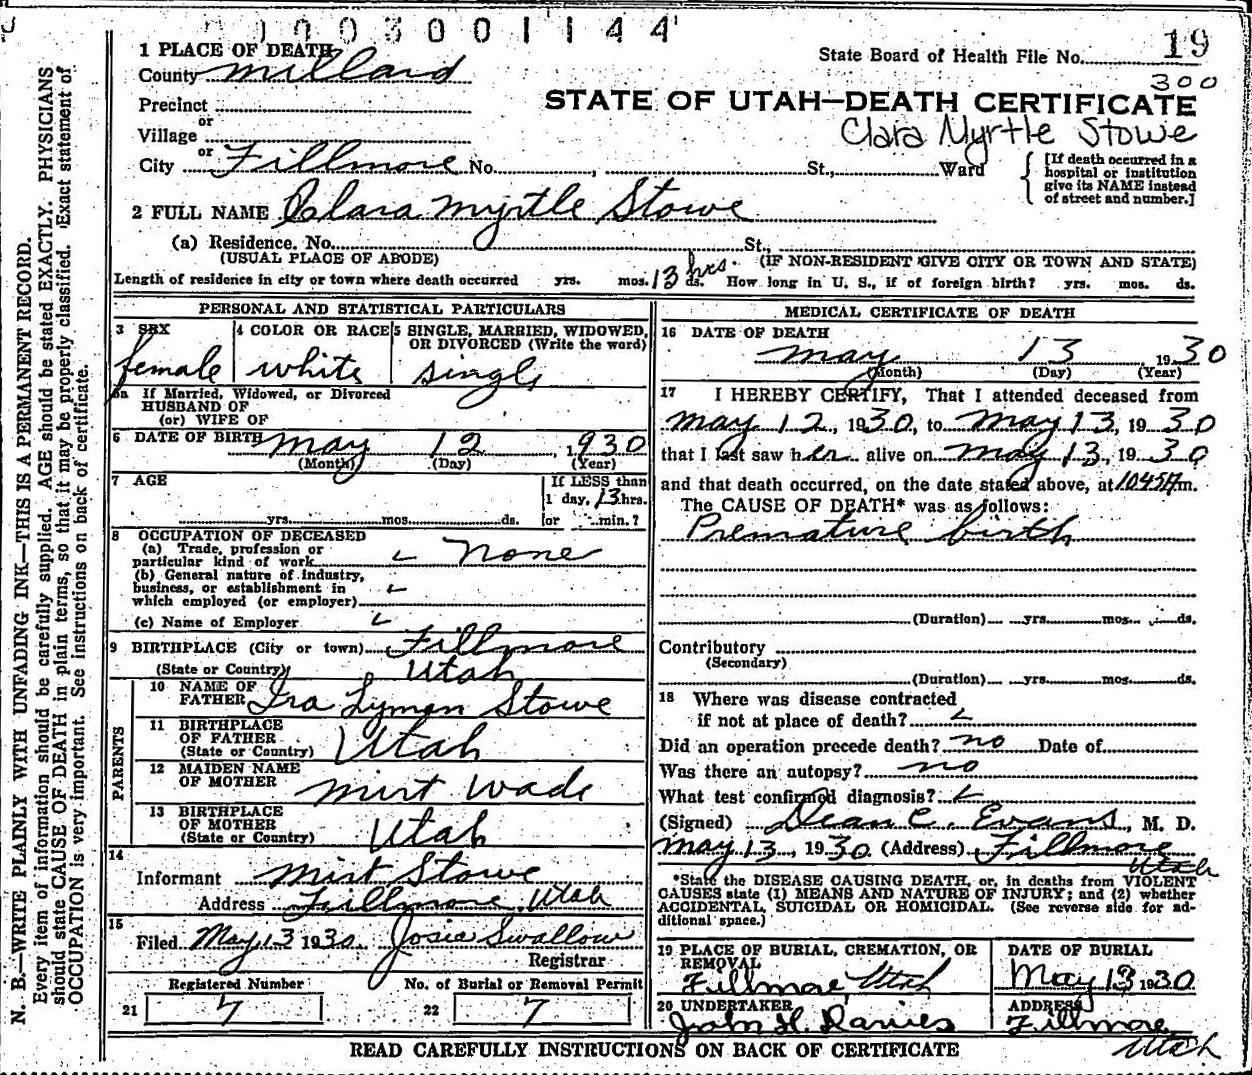 0003001144
1 PLACE OF DEATH
State Board of Health File No. 19
County Millard
300
Precinct
STATE OF UTAH—DEATH CERTIFICATE
or
Village
Clara Myrtle Stowe
or
City Fillmore No. , St., Ward
[If death occurred in a
hospital or institution
give its NAME instead
of street and number.]
2 FULL NAME Clara Myrtle Stowe
(a) Residence. No. St.,
(USUAL PLACE OF ABODE) (IF NON-RESIDENT GIVE CITY OR TOWN AND STATE)
Length of residence in city or town where death occurred yrs. mos. 13 hrs. ds. How long in U. S., if of foreign birth? yrs. mos. ds.
PERSONAL AND STATISTICAL PARTICULARS
3 SEX
female
4 COLOR OR RACE
white
5 SINGLE, MARRIED, WIDOWED,
OR DIVORCED (Write the word)
single
5a If Married, Widowed, or Divorced
HUSBAND OF
(or) WIFE OF
6 DATE OF BIRTH May 12, 1930
(Month) (Day) (Year)
7 AGE
If LESS than
1 day, 13 hrs.
yrs. mos. ds. or min.?
8 OCCUPATION OF DECEASED
(a) Trade, profession or
particular kind of work none
(b) General nature of industry,
business, or establishment in
which employed (or employer)
(c) Name of Employer
9 BIRTHPLACE (City or town) Fillmore
(State or Country) Utah
PARENTS
10 NAME OF
FATHER Ira Lyman Stowe
11 BIRTHPLACE
OF FATHER
(State or Country) Utah
12 MAIDEN NAME
OF MOTHER Mirt Wade
13 BIRTHPLACE
OF MOTHER
(State or Country) Utah
14
Informant Mirt Stowe
Address Fillmore, Utah
15
Filed May 13 1930. Josie Swallow
Registrar
Registered Number No. of Burial or Removal Permit
21 7 22 7
MEDICAL CERTIFICATE OF DEATH
16 DATE OF DEATH
May 13, 1930
(Month) (Day) (Year)
17 I HEREBY CERTIFY, That I attended deceased from
May 12, 1930, to May 13, 1930
that I last saw her alive on May 13, 1930
and that death occurred, on the date stated above, at 1045 m.
The CAUSE OF DEATH* was as follows:
Premature birth
(Duration) yrs. mos. ds.
Contributory
(Secondary)
(Duration) yrs. mos. ds.
18 Where was disease contracted
if not at place of death?
Did an operation precede death? no Date of
Was there an autopsy? no
What test confirmed diagnosis?
(Signed) Dean C. Evans, M. D.
May 13, 1930 (Address) Fillmore
Utah
*State the DISEASE CAUSING DEATH, or, in deaths from VIOLENT
CAUSES state (1) MEANS AND NATURE OF INJURY; and (2) whether
ACCIDENTAL, SUICIDAL OR HOMICIDAL. (See reverse side for ad-
ditional space.)
19 PLACE OF BURIAL, CREMATION, OR
REMOVAL
Fillmore Utah
DATE OF BURIAL
May 13 1930.
20 UNDERTAKER
John H. Davies
ADDRESS
Fillmore
Utah
READ CAREFULLY INSTRUCTIONS ON BACK OF CERTIFICATE
N. B.—WRITE PLAINLY WITH UNFADING INK—THIS IS A PERMANENT RECORD.
Every item of information should be carefully supplied. AGE should be stated EXACTLY. PHYSICIANS
should state CAUSE OF DEATH in plain terms, so that it may be properly classified. Exact statement of
OCCUPATION is very important. See instructions on back of certificate.